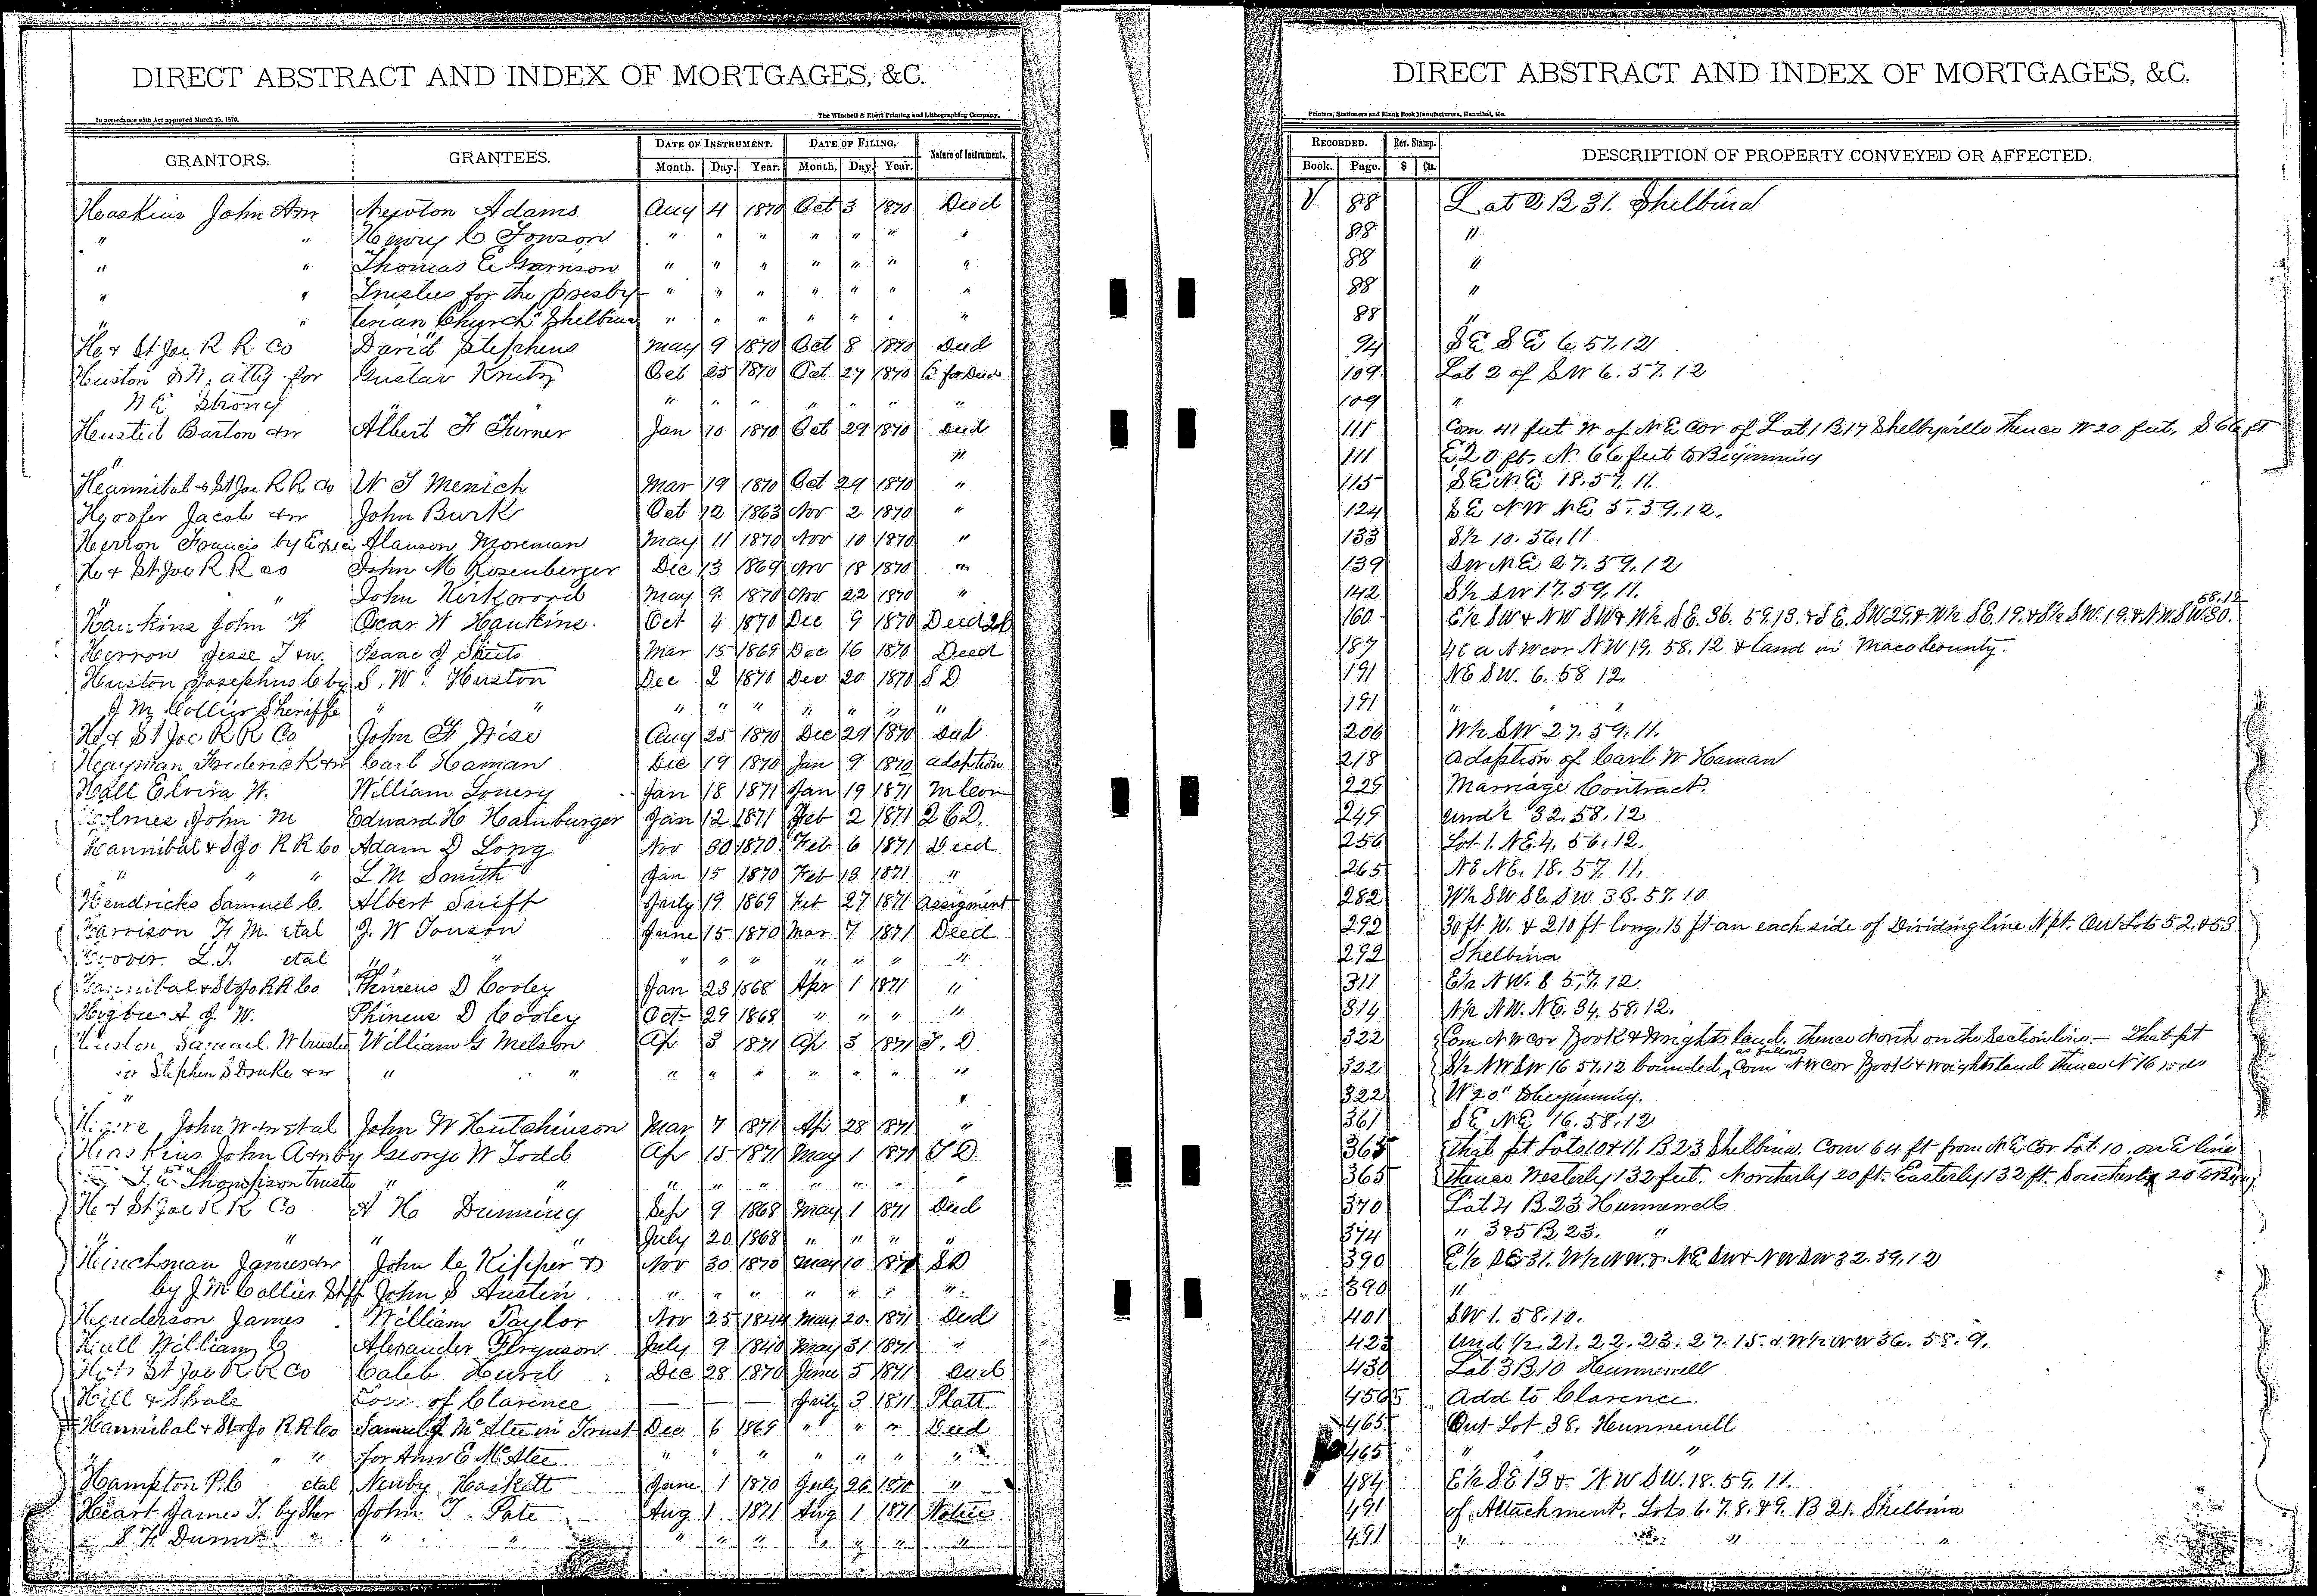 DIRECT ABSTRACT AND INDEX OF MORTGAGES, &C.
In accordance with Act approved March 25, 1870.
The Winchell & Ebert Printing and Lithographing Company.
GRANTORS. GRANTEES. DATE OF INSTRUMENT. DATE OF FILING. Nature of Instrument.
Month. Day. Year. Month. Day. Year.
Haskins John &w Newton Adams Aug 4 1870 Oct 3 1870 Deed
" " Henry C Towson " " " " " " "
" " Thomas E Garrison " " " " " " "
" " Trustees for the Presby- " " " " " " "
" " terian Church Shelbina " " " " " " "
H & St Joe R R Co David Stephens May 9 1870 Oct 8 1870 Deed
Huston S W. atty for Gustav Oct 25 1870 Oct 27 1870 B for Deed
N E Strong " " " " " " " "
Husted Barton &w Albert F Turner Jan 10 1870 Oct 29 1870 Deed
" "
Hannibal & St Joe R R Co W S Menich Mar 19 1870 Oct 29 1870 "
Hoofer Jacob &w John Burk Oct 12 1863 Nov 2 1870 "
Herron Francis by Alanson Moreman May 11 1870 Nov 10 1870 "
H & St Joe R R Co John M Rosenberger Dec 13 1869 Nov 18 1870 "
" " John Kirkwood May 9 1870 Nov 22 1870 "
Hawkins John F Oscar W Hawkins. Oct 4 1870 Dec 9 1870 Deed
Herron Jesse T &w. Isaac J Sheets Mar 15 1869 Dec 16 1870 Deed
Huston Josephus C by S. W. Huston Dec 2 1870 Dec 20 1870 S D
J M Collier Sheriff " " " " " " " " "
H & St Joe R R Co John F Wise Aug 25 1870 Dec 29 1870 Deed
Hayman Frederick &w Carl Haman Dec 19 1870 Jan 9 1870 adoption
Hall Elvira W. William Lowery Jan 18 1871 Jan 19 1871 M Con
Holmes John M Edward H Hamburger Jan 12 1871 Feb 2 1871 2 C D.
Hannibal & St Jo R R Co Adam D Long Nov 30 1870 Feb 6 1871 Deed
" " " L M Smith Jan 15 1870 Feb 18 1871 "
Hendricks Samuel C. Albert Swift July 19 1869 Feb 27 1871 Assigment
Garrison F M. etal J. W Towson June 15 1870 Mar 7 1871 Deed
Hoover L. T. etal " " " " " " " " "
Hannibal & St Jo R R Co Phineus D Cooley Jan 23 1868 Apr 1 1871 "
Higbee A J. W. Phineus D Cooley Oct 29 1868 " " " "
Huston Samuel W trustee William G Melson Ap 3 1871 Ap 3 1871 T. D
for Stephen S Drake &w " " " " " " " " "
" "
John W &w etal John W Hutchinson Mar 7 1871 Apr 28 1871 "
Haskins John A &w by George W Todd Ap 15 1871 May 1 1871 T D
T. E. Thompson trustee " " " " " " " " "
H & St Joe R R Co A H Dunning Sep 9 1868 May 1 1871 Deed
" " " " July 20 1868 " " " "
Hinchman James &w John C Kipper & Nov 30 1870 May 10 1871 S D
by J M Collier Shff John S Austin. " " " " " " "
Henderson James William Taylor Nov 25 1844 May 20 1871 Deed
Hall William C Alexander Ferguson July 9 1840 May 31 1871 "
H & St Joe R R Co Caleb Hurd Dec 28 1870 June 5 1871 Deed
Hill & Shale Town of Clarence — — — July 3 1871 Platt
Hannibal & St Jo R R Co Samuel J McAtee in Trust Dec 6 1869 " " " Deed
" " " for Ann E McAtee " " " " " " "
Hampton P. C etal Newby Haskett June 1 1870 July 26 1870 "
Heart James T. by Sher John T. Pate Aug 1 1871 Aug 1 1871 Notice
S. F. Dunn " " " " " " " " "
DIRECT ABSTRACT AND INDEX OF MORTGAGES, &C.
Printers, Stationers and Blank Book Manufacturers, Hannibal, Mo.
RECORDED. Rev. Stamp. DESCRIPTION OF PROPERTY CONVEYED OR AFFECTED.
Book. Page. $ Cts.
V 88 Lot 2 B 31. Shelbina
88 "
88 "
88 "
88 "
94 S E S E 6. 57. 12
109 Lot 2 of S W 6. 57. 12
109 "
111 Com 41 feet W of N E cor of Lot 1 B 17 Shelbyville thence W 20 feet, S 66 ft
111 E 20 ft. N 66 feet to Beginning
115 S E N E 18. 57. 11.
124 S E N W N E 5. 59. 12.
133 S½ 10. 56. 11
139 S W N E 27. 59. 12
142 S½ S W 17. 59. 11.
160 E½ S W & N W S W & W½ S E. 36. 59. 13. & S E. S W 29. & W½ S E. 19. & S½ S W. 19. & N W. S W. 30. 58. 12
187 46 a N W cor N W 19. 58. 12 & land in Macon County.
191 N E S W. 6. 58 12.
191 " " " "
206 W½ S W 27. 59. 11.
218 Adoption of Carl W Haman
229 Marriage Contract.
249 Und ½ 32. 58. 12
256 Lot 1. N E. 4. 56. 12.
265 N E N E. 18. 57. 11.
282 W½ S W S E. S W 36. 57. 10
292 30 ft W. & 210 ft long, 15 ft on each side of Dividing line N pt. Out Lots 52. & 53
292 Shelbina
311 E½ N W. 8 57. 12
314 N½ N W. N E. 34. 58. 12.
322 Com N W cor Book & Wrights land. thence North on the Section line — That pt
322 S½ N W S W 16 57. 12 bounded as follows Com N W cor Book & Wrights land thence N 16 rods
322 W 20" to beginning.
361 S E N E 16. 58. 12
365 That pt Lots 10 & 11. B 23 Shelbina. Com 64 ft from N E Cor Lot 10. on E line
365 thence Westerly 132 feet. Northerly 20 ft. Easterly 132 ft. Southerly 20 to Beg
370 Lot 4 B 23 Hunnewell
374 " 3 & 5 B 23. "
390 E½ S E 31. W½ N W. & N E S W & N W S W 32. 59. 12
390 "
401 S W 1. 58. 10.
423 Und ½ 21. 22. 23. 27. 15. & W½ N W 36. 58. 9.
430 Lot 3 B 10 Hunnewell
456 Add to Clarence.
465 Out Lot 38. Hunnewell
465 " " "
484 E½ S E 13 & N W S W. 18. 59. 11.
491 of Attachment. Lots 6. 7. 8. & 9. B 21. Shelbina
491 " " " "